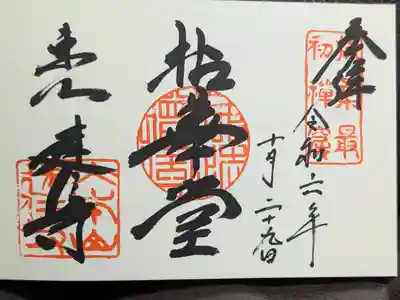 奉拝
扶桑最
初禅窟
令和六年
十月二十九日
拈華堂
東山
建仁寺